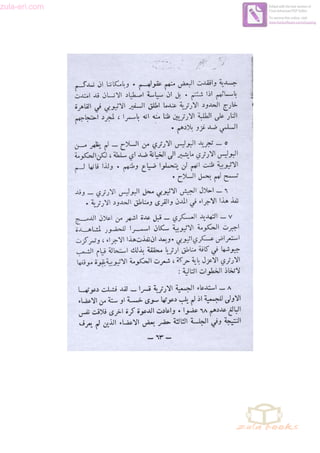 zula-eri.com
جسدية وافقدت البعض منهم عقولهم • وبامكاننا ان نمدكم
باسمائهم اذا شئتم • بل ان سياسة اضطهاد الانسان قد امتدت
خارج الحدود الارترية عندما اطلق السفير الاثيوبي في القاهرة
النار على الطلبة الارتريين ظنا منه انه باسمرا ، لمجرد احتجاجهم
السلمي ضد غزو بلادهم •
٥ ــ تجريد البوليس الارتري من السلاح ــ لم يظهر مــن
البوليس الارتري مايشير الى الخيانة ضد اي سلطة ، لكن الحكومة
الاثيوبية ظنت انهم لن يتحملوا ضياع وطنهم • ولذا فانها لــم
تسمح لهم بحمل السلاح •
٦ ــ احلال الجيش الاثيوبي محل البوليس الارتري ــ وقد
نفذ هذا الاجراء في المدن والقرى ومناطق الحدود الارترية •
٧ ــ التهديد العسكري ــ قبل عدة اشهر من اعلان الدمــج
اجبرت الحكومة الاثيوبية سكان اسمــرا للحضور لمشاهــدة
استعراض عسكري اثيوبي • وبعد ان نفذت هذا الاجراء ، وتمركزت
جيوشها في كافة مناطق ارتريا محققة بذلك استحالة قيام الشعب
الارتري الاعزل باية حركة ، شعرت الحكومة الاثيوبية بقوة موقفها
لاتخاذ الخطوات التالية :
٨ ــ استدعاء الجمعية الارترية قسرا ــ لقد فشلت دعوتهــا
الاولى للجمعية اذ لم يلب دعوتها سوى خمسة او ستة من الاعضاء
البالغ عددهم ٦٨ عضوا • واعادت الدعوة كرة اخرى فلاقت نفس
النتيجة وفي الجلسة الثالثة حضر بعض الاعضاء الذين لم يعرف
ــ ٦٣ ــ
zula books